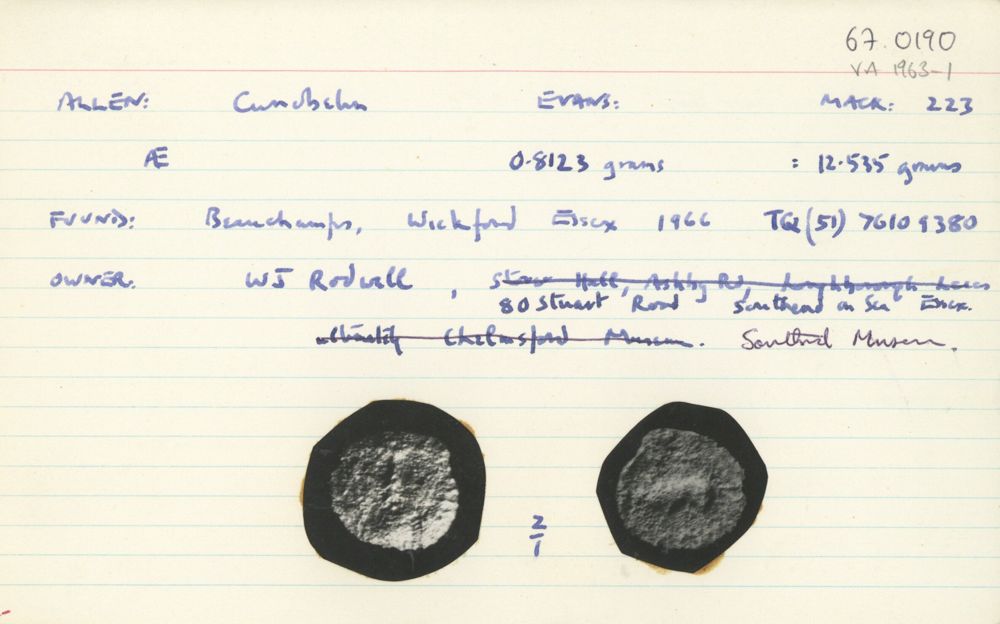 67.0190
VA 1963-1
ALLEN: Cunobelin EVANS: MACK: 223
Æ 0.8123 grams : 12.535 grains
FOUND: Beauchamps, Wickford Essex 1966 TQ(51) 76109380
OWNER. WJ Rodwell, Hall, Ashby Rd, Loughborough Leics
80 Stuart Road Southend on Sea Essex.
ultimately Chelmsford Museum. Southend Museum.
2
1